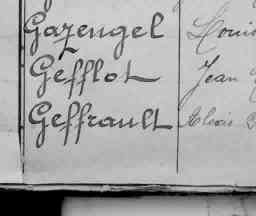 Gazengel Louis
Gefflot Jean
Geffrault Alexis